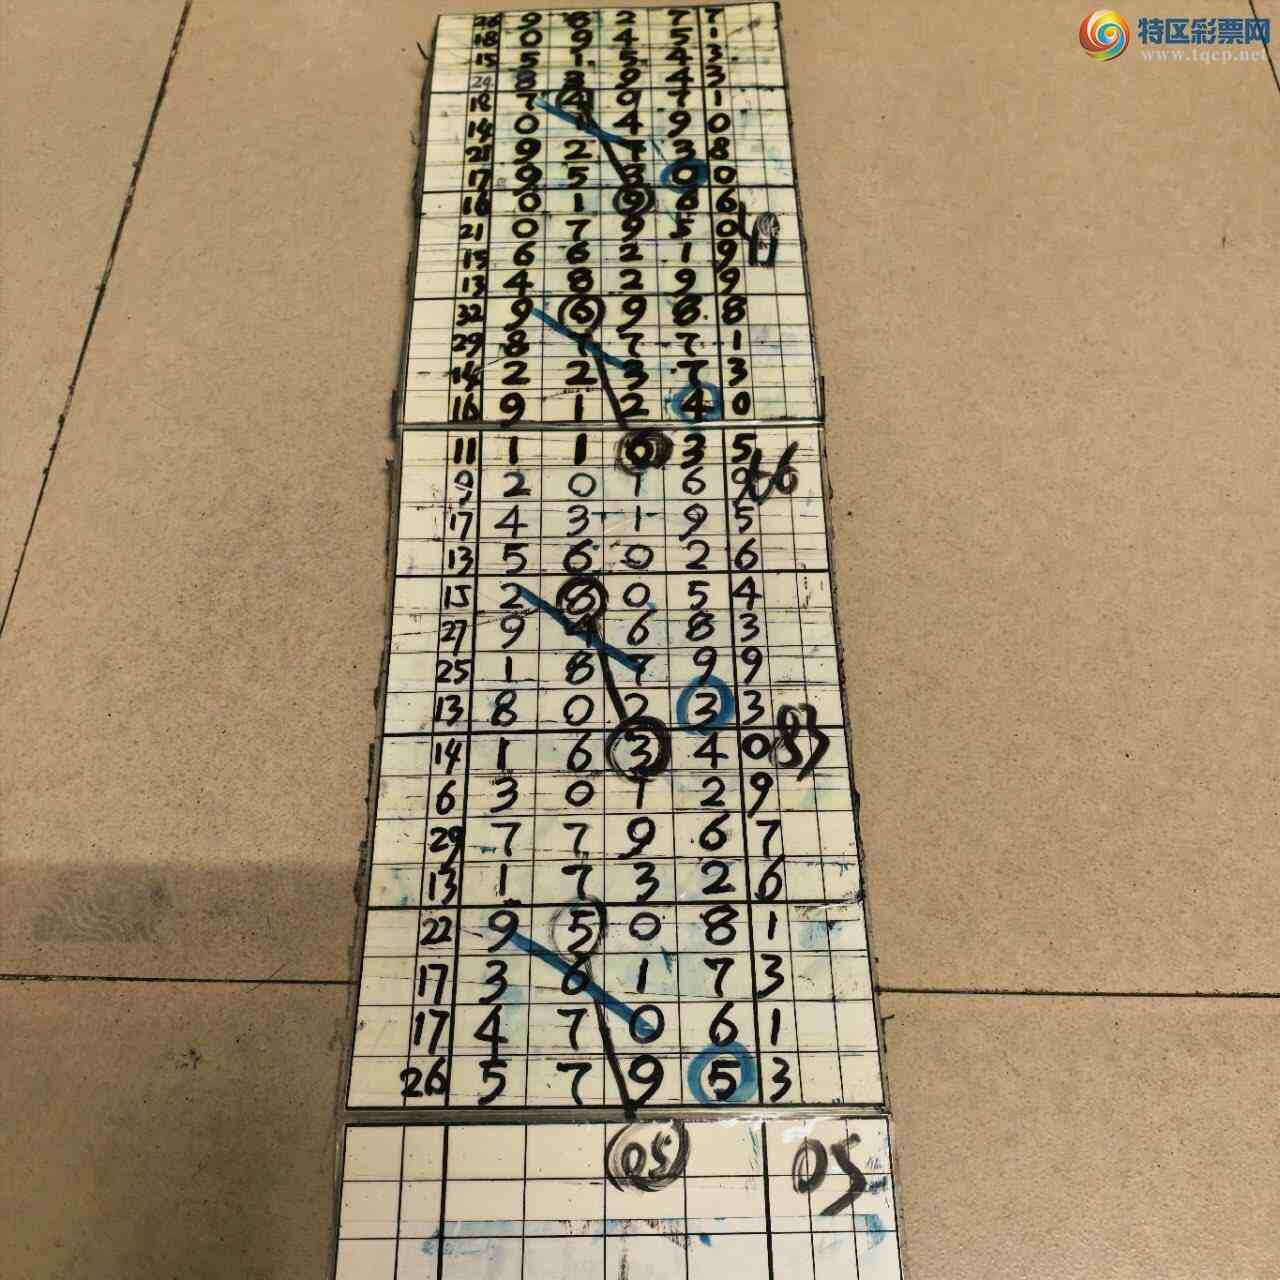 特区彩票网
www.tqcp.net
26 9 8 2 7 7
18 0 9 4 5 1
15 5 1 5 4 3
24 8 3 9 4 3
18 7 4 0 7 1
14 0 1 4 9 0
21 9 2 7 3 8
17 9 5 3 0 0
16 0 1 9 6 6
21 0 7 9 5 0
15 6 6 2 1 9
13 4 8 2 9 9
32 9 6 9 8 8
29 8 7 7 7 1
14 2 2 3 7 3
16 9 1 2 4 0
11 1 1 6 3 5
9 2 0 1 6 9 66
17 4 3 1 9 5
13 5 6 0 2 6
15 2 8 0 5 4
27 9 4 6 8 3
25 1 8 7 9 9
13 8 0 2 3 3
14 1 6 3 4 0 83
6 3 0 1 2 9
29 7 7 9 6 7
13 1 7 3 2 6
22 9 5 0 8 1
17 3 6 1 7 3
17 4 7 0 6 1
26 5 7 9 5 3
05 05